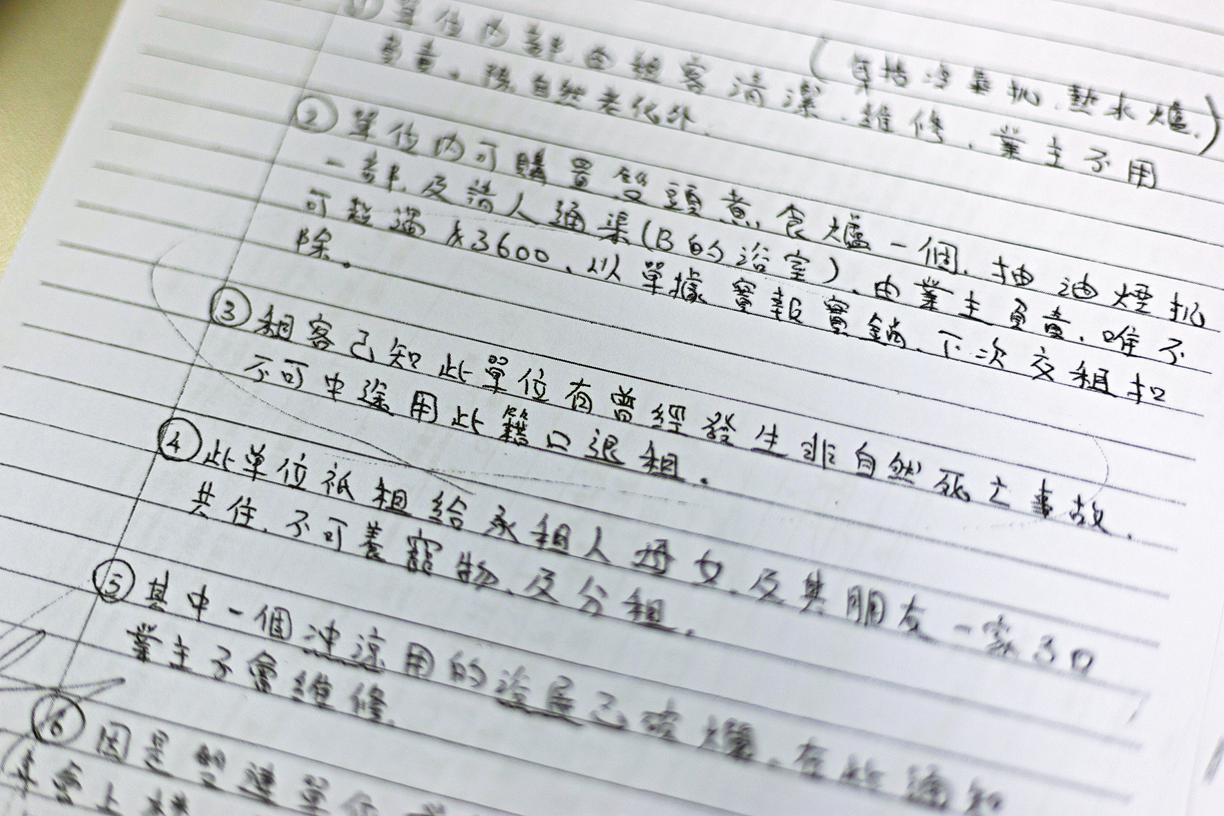 ① 單位內部由租客清潔、維修、業主不用
(包括冷氣机、熱水爐、)
負責。除自然老化外.
② 單位內可購置雙頭煮食爐一個、抽油煙机
一部及請人通渠(B的浴室)、由業主負責、唯不
可超過$3600、以單據實報實銷、下次交租扣
除。
③ 租客已知此單位有曾經發生非自然死亡事故、
不可中途用此籍口退租.
④ 此單位祇租給承租人母女、及其朋友一家3口
共住、不可養寵物、及分租.
⑤ 其中一個沖涼用的 已破爛、在此通知
業主不會維修.
⑥ 因是 連單位
會上